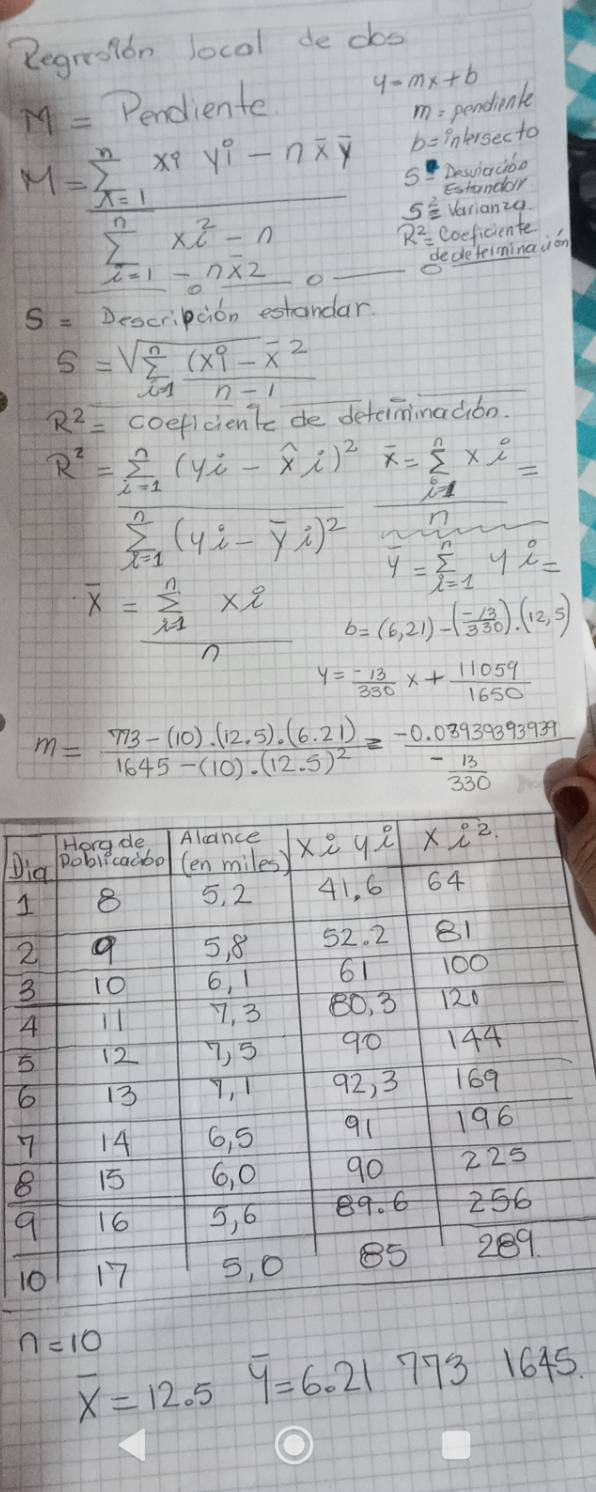 Regresión local de dos
y=mx+b
M = Pendiente
m = pendiente
b = intersecto
M = n∑x=1 xi yi - n x̄ ȳ
S = Desviación Estandar
S² = Varianza.
R² = Coeficiente de determinación
n∑i=1 xi² - n
- n x̄2
S = Descripción estandar.
S = √ n∑i=1 (xi - x̄ ²
n-1
R² = Coeficiente de determinación.
R² = n∑i=1 (yi - x̂i)²
n∑i=1 (yi - ȳi)²
x̄ = n∑i=1 xi =
n
ȳ = n∑i=1 yi =
x̄ = n∑i=1 xi
n
b = (6,21) - (-13/330).(12,5)
y = -13/330 x + 11059/1650
m = 773-(10).(12.5).(6.21) / 1645-(10).(12.5)² = -0.03939393939
- 13/330
Dia Hora de Poblicacióo Alcance (en miles) xi yi xi².
1 8 5,2 41,6 64
2 9 5,8 52.2 81
3 10 6,1 61 100
4 11 7,3 80,3 121
5 12 7,5 90 144
6 13 7,1 92,3 169
7 14 6,5 91 196
8 15 6,0 90 225
9 16 5,6 89.6 256
10 17 5,0 85 289.
n=10
x̄ = 12.5 ȳ = 6.21 773 1645.